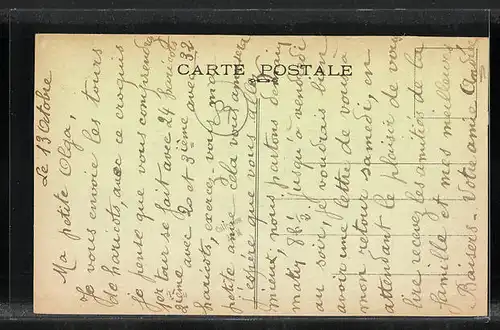 CARTE POSTALE
Le 13 Octobre
Ma petite Olga,
Je vous envoie les tours
de haricots, avec ce croquis
je pense que vous comprendrez
1er tour se fait avec 24 haricots
2ième avec 20 et 3ième avec 32
haricots, exercez vous ma
petite amie cela vous
j'espère que vous allez
mieux, nous partons dimanche
matin 8h½ jusqu'à vendredi
au soir, je voudrais bien
avoir une lettre de vous à
mon retour samedi, en
attendant le plaisir de vous
lire recevez les amitiés de la
famille et mes meilleurs
Baisers - Votre amie